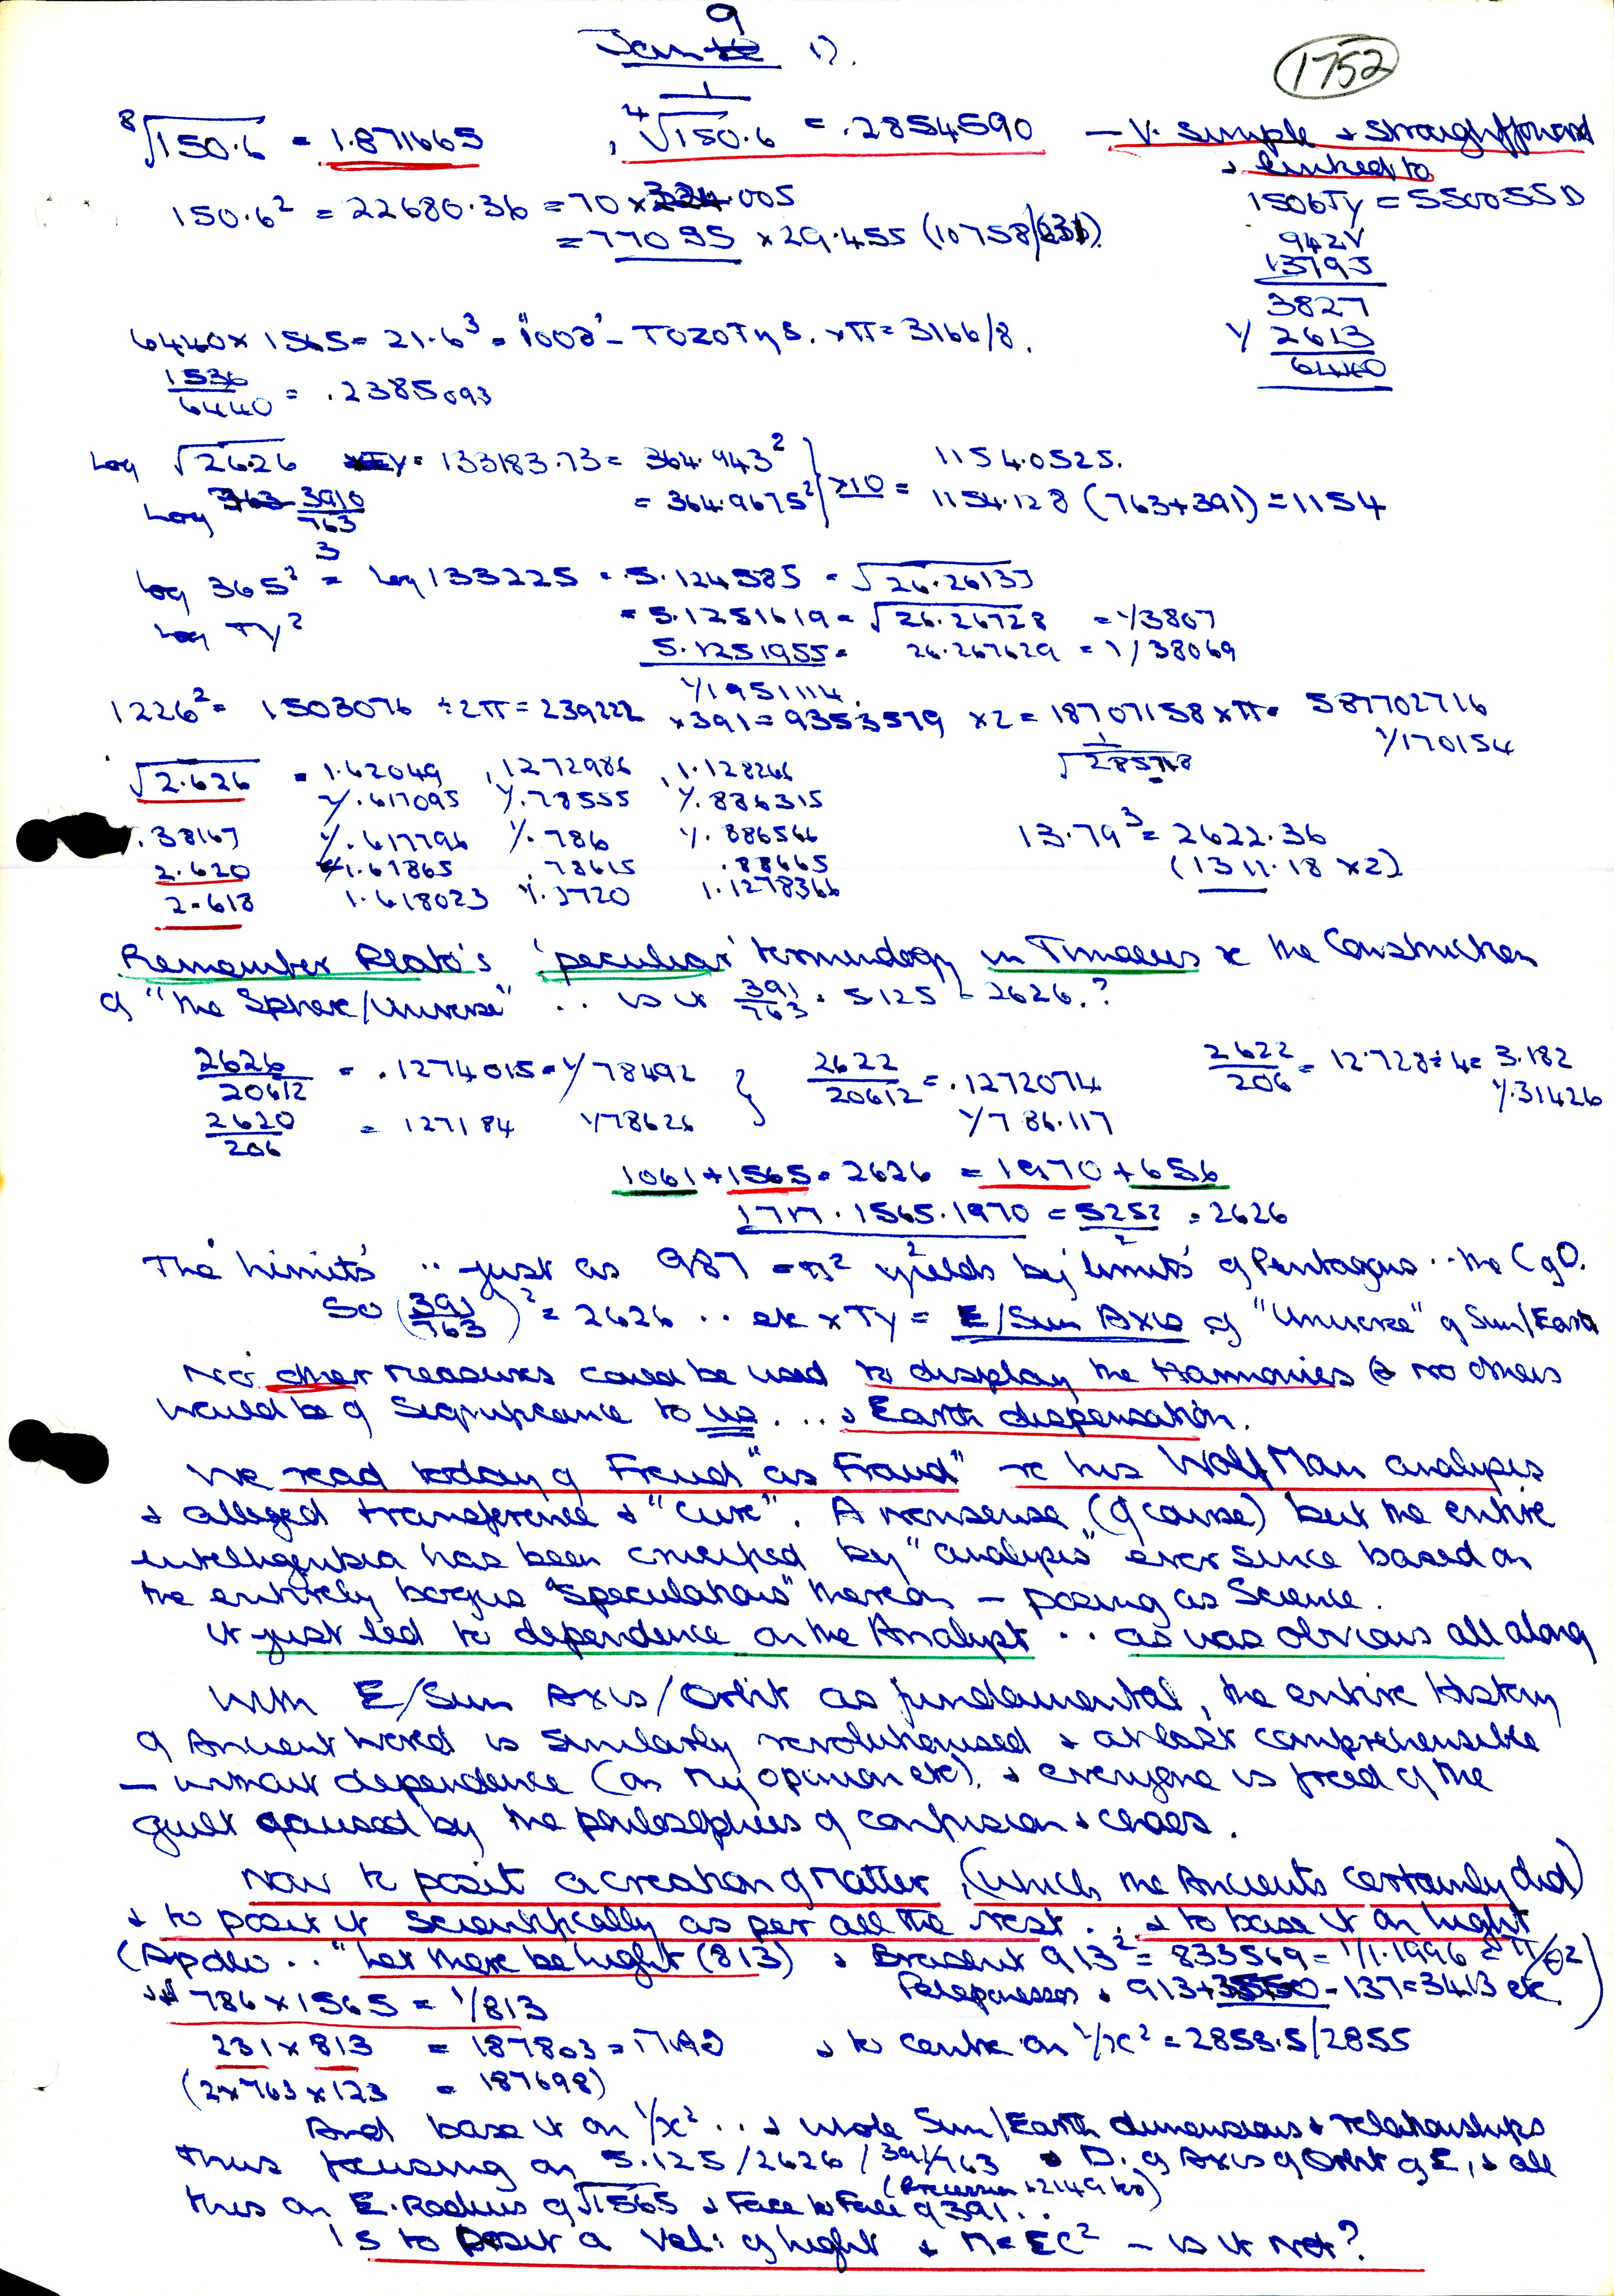 Jan 9 1).
1752
⁸√150.6 = 1.871665 , 1/⁴√150.6 = .2854590 — V. simple & straightforward
& linked to
150.6² = 22680.36 = 70 × 324.005
1506Ty = 550055D
= 77055 × 29.455 (10758/231).
942V
13795
3827
Y 2613
6440
6440 × 1565 = 21.6³ = "1008" - TOZOTyS. × π = 3166/8.
1536/6440 = .2385093
Log √26.26 = 133183.73 = 364.943² } ×10 = 1154.0525.
Log 3910/763 = 364.9675² 1154.128 (763+391) = 1154
Log 365² = Log 133225 = 5.124585 = √26.26137
Log TY² = 5.1251619 = √26.26728 = 1/3807
5.1251955 = 26.267629 = 1/38069
1/1951114.
1226² = 1503076 ÷ 2π = 239222 × 391 = 9353579 × 2 = 18707158 × π = 587702716
1/170154
√2.626 = 1.62049 , 1272986 , 1.128266
1/.617095 1/.78555 1/.886315
.38167 1/.617796 1/.786 1/.886566
2.620 1.61865 .78615 .88665
2.618 1.618023 1/.1720 1.1278366
13.79³ = 2622.36
(1311.18 × 2)
Remember Plato's 'peculiar' terminology in Timaeus re the Construction
of "the Sphere/Universe" .. is it 391/763 = 5125 = 2626.?
2626/20612 = .1274015 = 1/78492 } 2622/20612 = .1272074 2622/206 = 12.728 ÷ 4 = 3.182
1/.31426
2620/206 = 127184 1/78626 1/786.117
1061 + 1565 = 2626 = 1970 + 656
1717 . 1565 . 1970 = 5252/2 = 2626
The 'Limits' .. just as 987 = π² yields by 'limits' of Pentagons .. the C of O.
So (391/763)² = 2626 .. etc × Ty = E/Sun Axis of "Universe" of Sun/Earth
No other measures could be used to display the Harmonies & no others
would be of Significance to us ... & Earth dispensation.
We read today of Freud "as Fraud" re his Wolf Man analysis
& alleged transference & "cure". A nonsense (of course) but the entire
intelligentsia has been crucified by "analysis" ever since based on
the entirely bogus "speculations" thereon — posing as Science.
It just led to dependence on the Analyst .. as was obvious all along
With E/Sun Axis/Orbit as fundamental, the entire History
of Ancient World is similarly revolutionised & at last comprehensible
— without dependence (on my opinion etc). & everyone is freed of the
guilt caused by the philosophies of confusion & chaos.
Now to posit a creation of Matter, (which the Ancients certainly did)
& to posit it scientifically as per all the rest .. & to base it on light
(Apollo .. "Let there be light (813) & 913² = 833569 = 1/1.1996 =
786 × 1565 = 1/813
& 913 + 3550 - 137 = 3413 etc.
231 × 813 = 187803 & to centre on 1/x² = 2853.5/2855
(2×763×123 = 187698)
And base it on 1/x² .. & whole Sun/Earth dimensions & relationships
thus focusing on 5.125/2626/391/763 & D. of Axis of Orbit of E, & all
this on E. Radius of √1565 & Face to Face of 391..
(Precession & 2149 to)
Is to posit a Vel: of light & M = EC² — is it not?